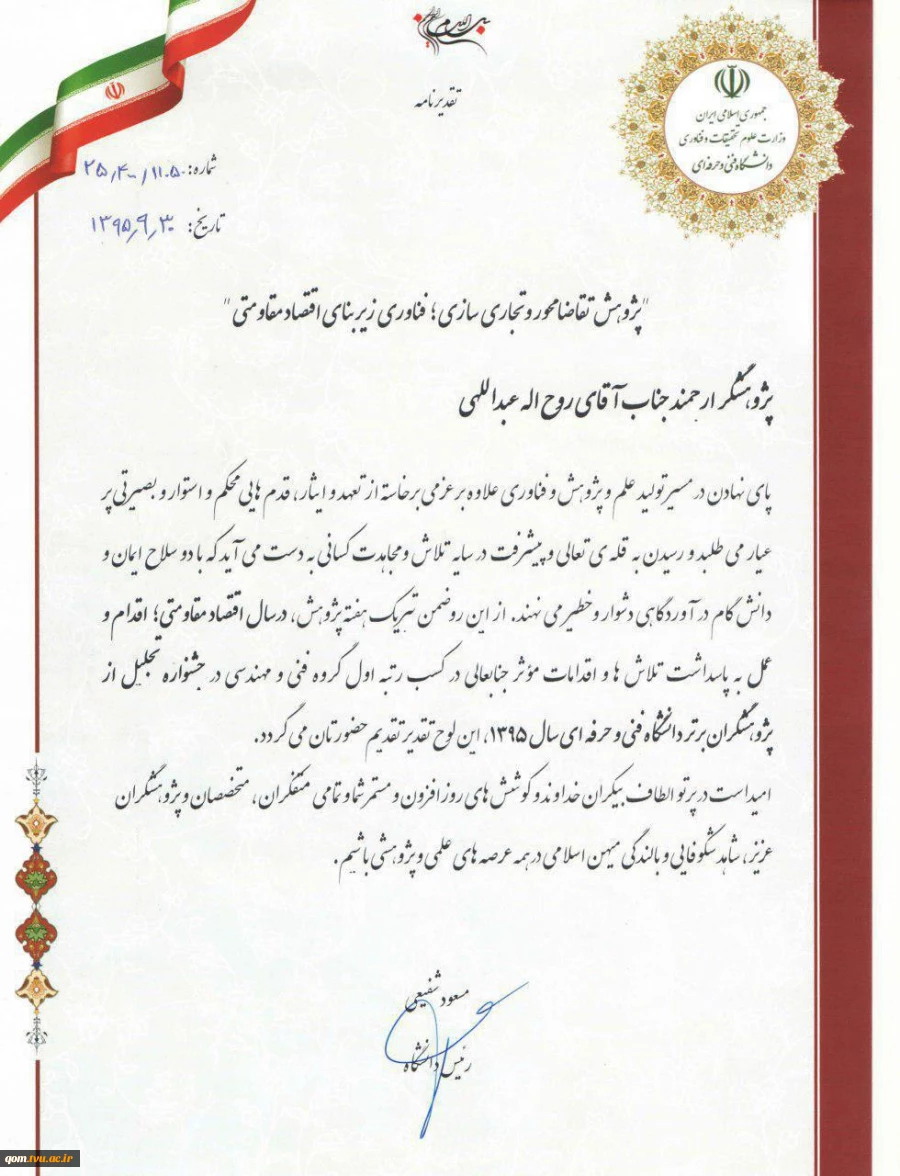 بسم الله الرحمن الرحیم
تقدیرنامه
جمهوری اسلامی ایران
وزارت علوم تحقیقات و فناوری
دانشگاه فنی و حرفه‌ای
شماره: ۲۵٫۴۰۰٫۱۱۰۵۰
تاریخ: ۱۳۹۵٫۹٫۳۰
"پژوهش تقاضامحور و تجاری سازی؛ فناوری زیربنای اقتصاد مقاومتی"
پژوهشگر ارجمند جناب آقای روح اله عبداللهی
پای نهادن در مسیر تولید علم و پژوهش و فناوری علاوه بر عزمی برخاسته از تعهد و ایثار، قدم هایی محکم و استوار و بصیرتی پر
عیار می طلبد و رسیدن به قله ی تعالی و پیشرفت در سایه تلاش و مجاهدت کسانی به دست می آید که با دو سلاح ایمان و
دانش گام در آوردگاهی دشوار و خطیر می نهند. از این رو ضمن تبریک هفته پژوهش، درسال اقتصاد مقاومتی؛ اقدام و
عمل به پاسداشت تلاش ها و اقدامات مؤثر جنابعالی در کسب رتبه اول گروه فنی و مهندسی در جشنواره تجلیل از
پژوهشگران برتر دانشگاه فنی و حرفه ای سال ۱۳۹۵، این لوح تقدیر تقدیم حضورتان می گردد.
امید است در پرتو الطاف بیکران خداوند و کوشش های روزافزون و مستمر شما و تمامی متفکران، متخصصان و پژوهشگران
عزیز، شاهد شکوفایی و بالندگی میهن اسلامی در همه عرصه های علمی و پژوهشی باشیم.
مسعود شفیعی
رئیس دانشگاه
qom.tvu.ac.ir